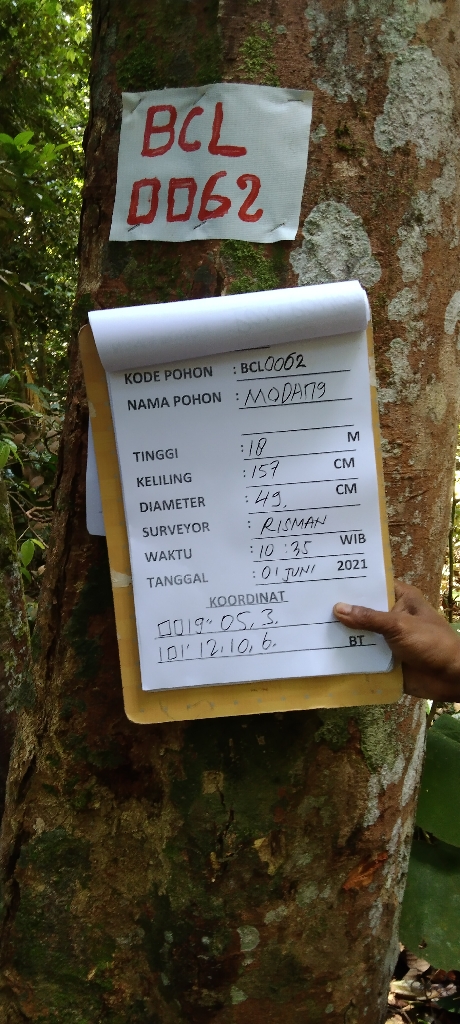 BCL
0062
KODE POHON : BCL0062
NAMA POHON : MODANG
TINGGI : 18 M
KELILING : 157 CM
DIAMETER : 49, CM
SURVEYOR : RISMAN
WAKTU : 10:35 WIB
TANGGAL : 01 JUNI 2021
KOORDINAT
0019° 05, 3,
101° 12, 10, 6, BT